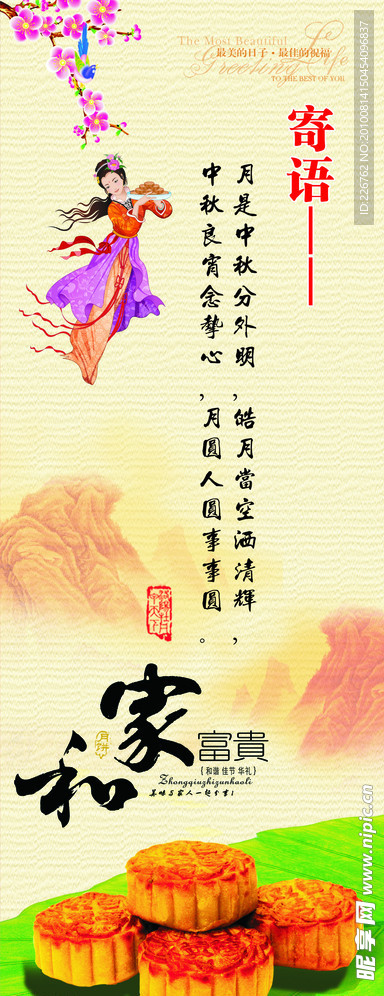 The Most Beautiful
最美的日子·最佳的祝福
Greeting Life
TO THE BEST OF YOU
寄语——
月是中秋分外明，皓月當空洒清輝，
中秋良宵念摯心，月圓人圓事事圓。
家和
月饼
富貴
{和谐 佳节 华礼}
Zhongqiuzhizunhaoli
美味与家人一起分享!
ID:226762 NO:20100814150454096837
昵享网 www.nipic.cn